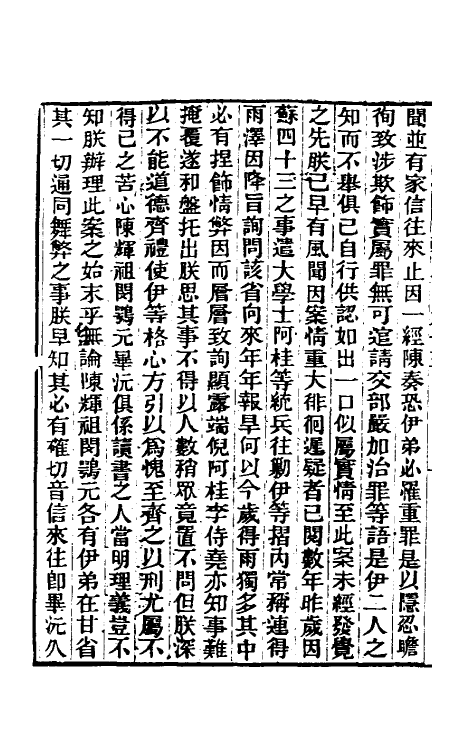 聞並有家信往來止因一經陳奏恐伊弟必罹重罪是以隱忍瞻
徇致涉欺飾實屬罪無可逭請交部嚴加治罪等語是伊二人之
知而不舉俱已自行供認如出一口似屬實情至此案未經發覺
之先朕已早有風聞因案情重大徘徊遲疑者已閱數年昨歲因
蘇四十三之事遣大學士阿桂等統兵往勦伊等摺內常稱連得
雨澤因降旨詢問該省向來年年報旱何以今歲得雨獨多其中
必有捏飾情弊因而層層致詢顯露端倪阿桂李侍堯亦知事難
掩覆遂和盤托出朕思其事不得以人數稍眾竟置不問但朕深
以不能道德齊禮使伊等格心方引以為愧至齊之以刑尤屬不
得已之苦心陳輝祖閔鶚元畢沅俱係讀書之人當明理義豈不
知朕辦理此案之始末乎無論陳輝祖閔鶚元各有伊弟在甘省
其一切通同舞弊之事朕早知其必有確切音信來往卽畢沅久